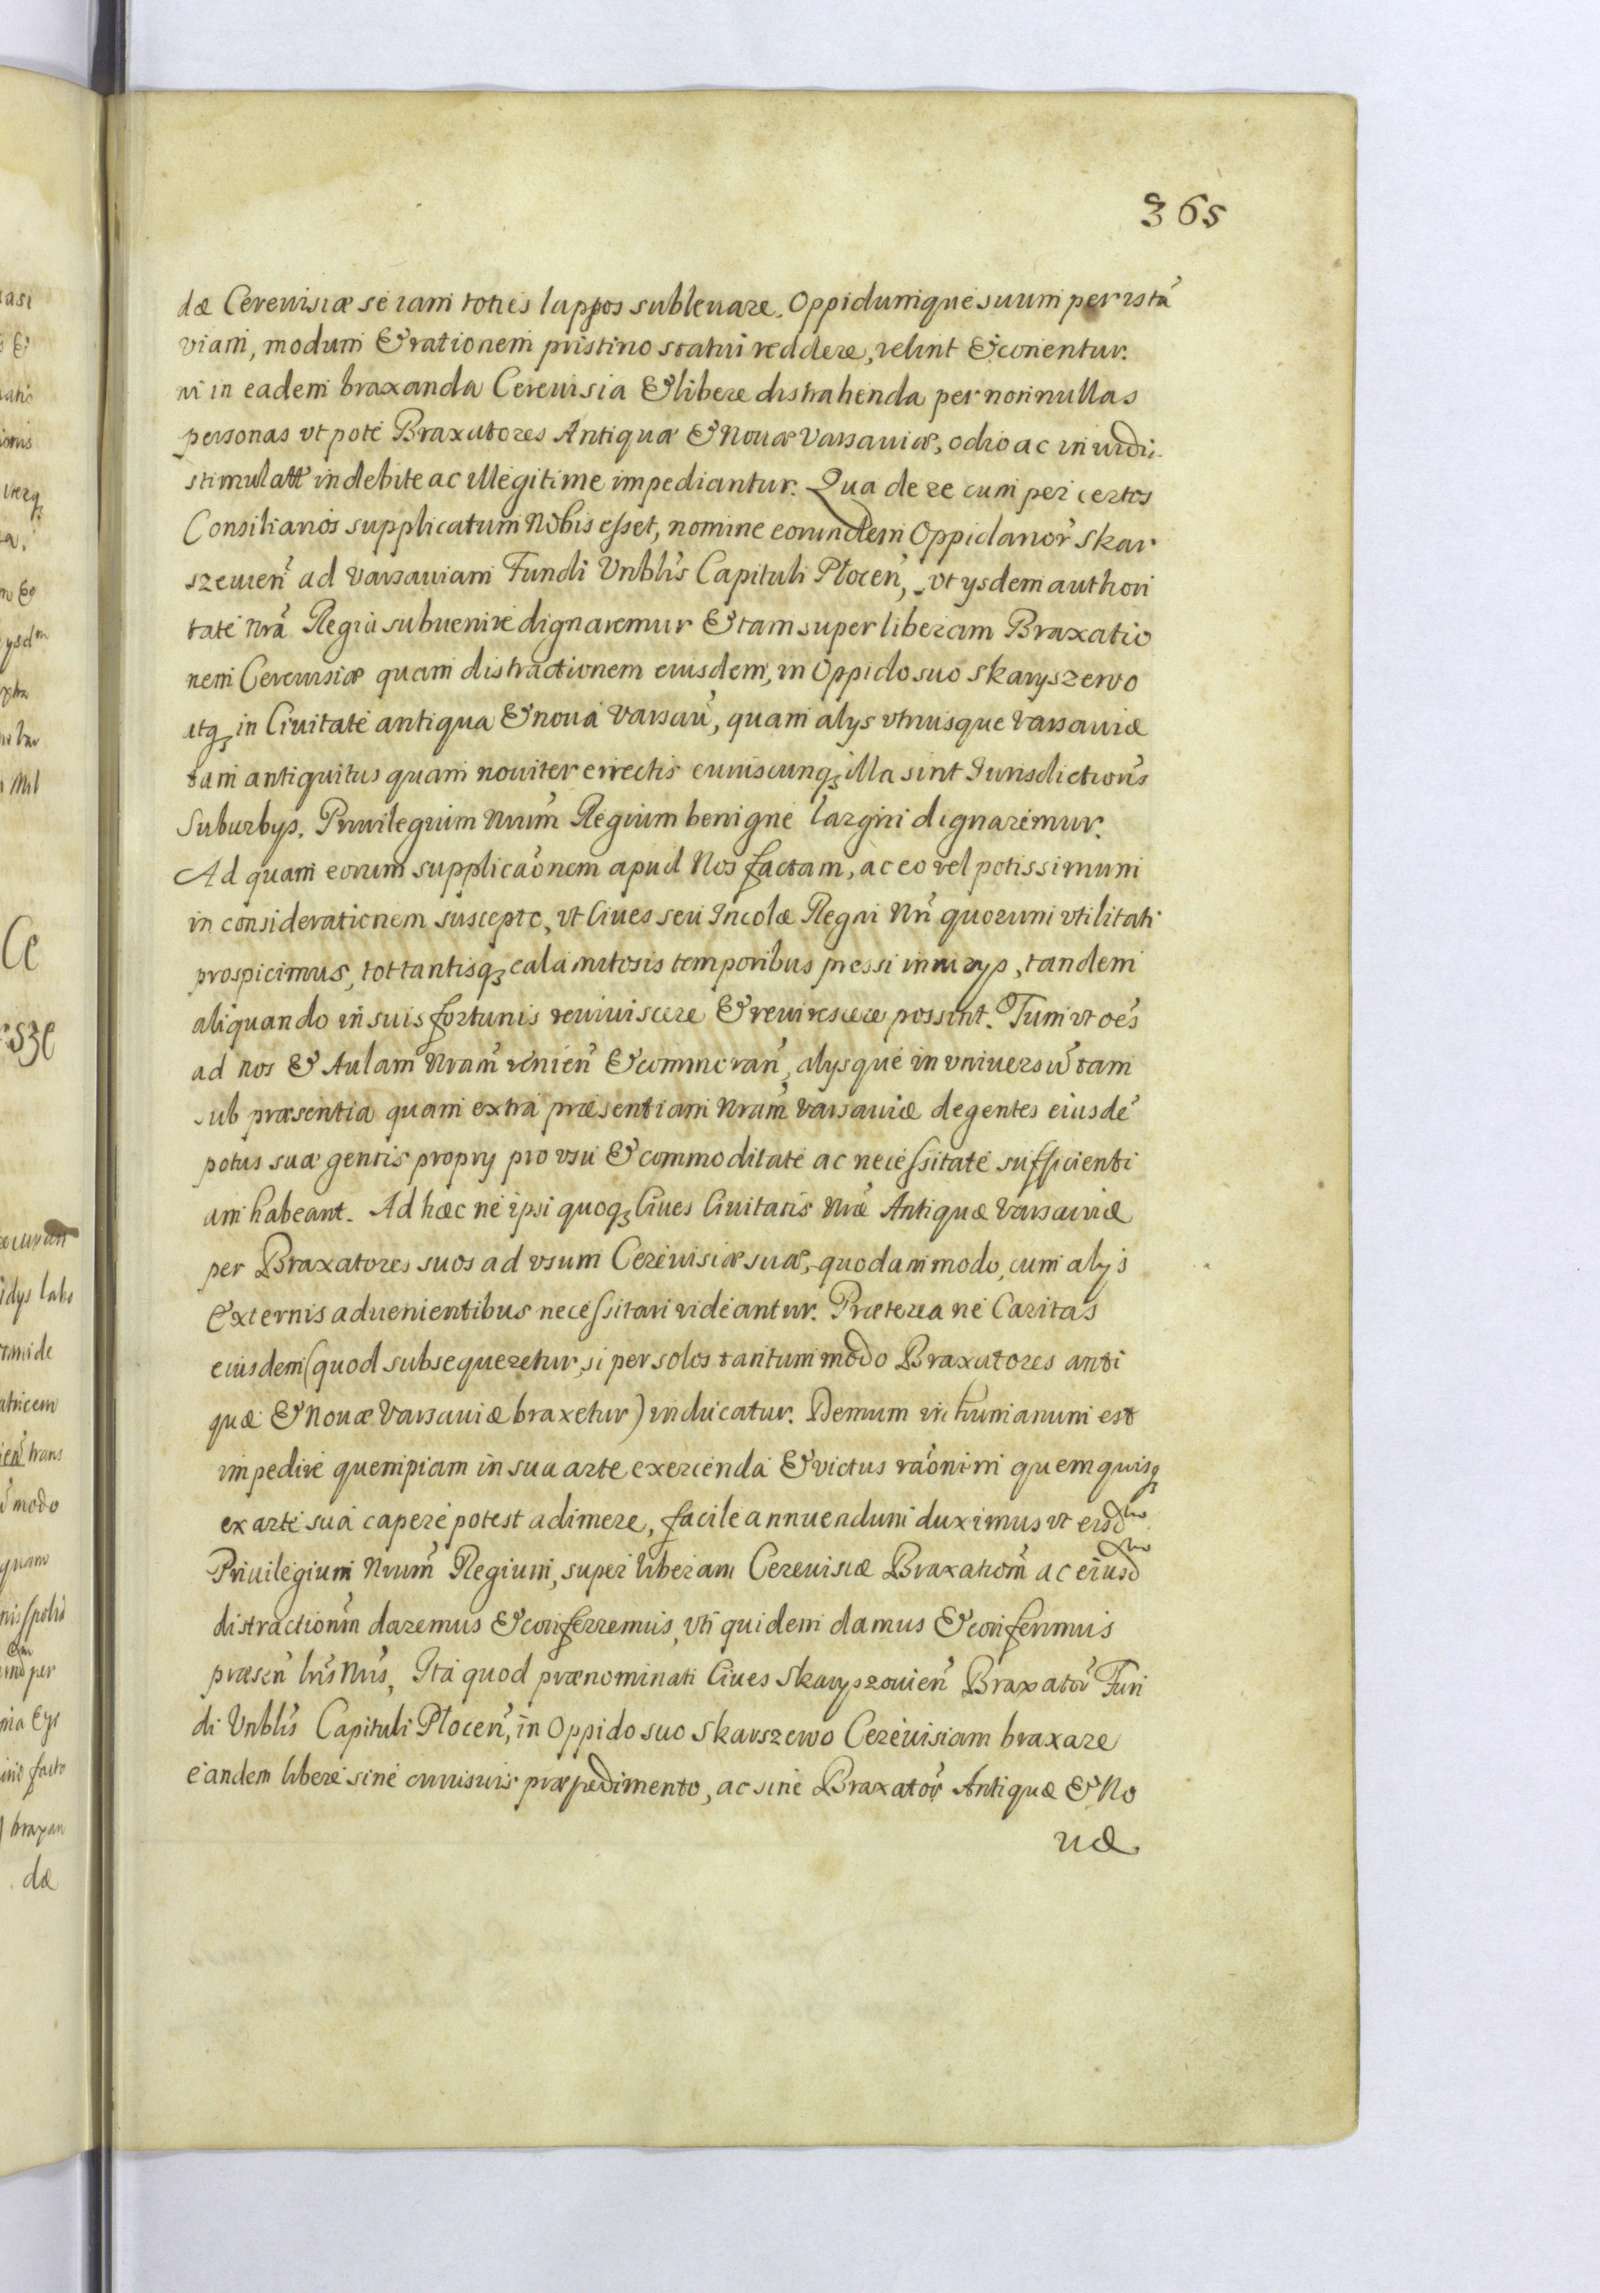 365
dæ Cereuisiæ se iam toties lapsos subleuare. Oppidumque suum per istā
viam, modum & rationem pristino statui reddere, velint & conentur.
ni in eadem braxanda Cereuisia & libere distrahenda per nonnullas
personas vt pote Braxatores Antiquæ & Nouæ Varsauiæ, odio ac inuidi-
stimulati indebite ac illegitime impediantur. Qua de re cum per certos
Consiliarios supplicatum Nobis esset, nomine eorundem Oppidanor̃ Skar
szeuien̄ ad Varsauiam Fundi Vnblis̄ Capituli Płocen̄, vt ysdem authori
tate nrā Regia subuenire dignaremur & tam super liberam Braxatio
nem Cereuisiæ quam distractionem eiusdem, in Oppido suo Skaryszewo
itq꜄ in Ciuitate antiqua & noua Varsau̅, quam alys vtriusque Varsauiæ
tam antiquitus quam nouiter errectis cuiuscunq꜄ illa sint Iurisdictionis
Suburbys. Priuilegium Nrum̄ Regium benigne largiri dignaremur.
Ad quam eorum supplicaōnem apud Nos factam, ac eo vel potissimum
in considerationem suscepto, vt Ciues seu Incolæ Regni Nrī quorum vtilitati
prospicimus, tot tantisq꜄ calamitosis temporibus pressi iniurys, tandem
aliquando in suis fortunis reuiuiscere & reuirescere possint. Tum vt oēs
ad nos & Aulam Nram̄ venien̄ & commoran̄, alysque in vniuersū tam
sub præsentia quam extra præsentiam Nram̄ Varsauiæ degentes eiusdē
potus suæ gentis propry pro vsu & commoditate ac necessitate sufficienti
am habeant. Ad hæc ne ipsi quoq꜄ Ciues Ciuitatis Nræ Antiquæ Varsauiæ
per Braxatores suos ad vsum Cereuisiæ suæ, quodammodo, cum alys
externis aduenientibus necessitari videantur. Præterea ne Caritas
eiusdem (quod subsequeretur, si per solos tantummodo Braxatores anti
quæ & Nouæ Varsauiæ braxetur) inducatur. Demum inhumanum est
impedire quempiam in sua arte exercenda & victus raōnem quem quisq꜄
ex arte sua capere potest adimere, facile annuendum duximus vt eisd
Priuilegium Nrum̄ Regium, super liberam Cereuisiæ Braxationm̄ ac eiusd
distractionm̄ daremus & conferremus, vti quidem damus & conferimus
præsen̄ lrīs Nrīs, Ita quod prænominati Ciues Skaryszouien̄ Braxator̃ Fun
di Vnblis̄ Capituli Płocen̄, in Oppido suo Skarszewo Cereuisiam braxare
eandem libere sine cuiusuis præpedimento, ac sine Braxator̃ Antiquæ & No
uæ